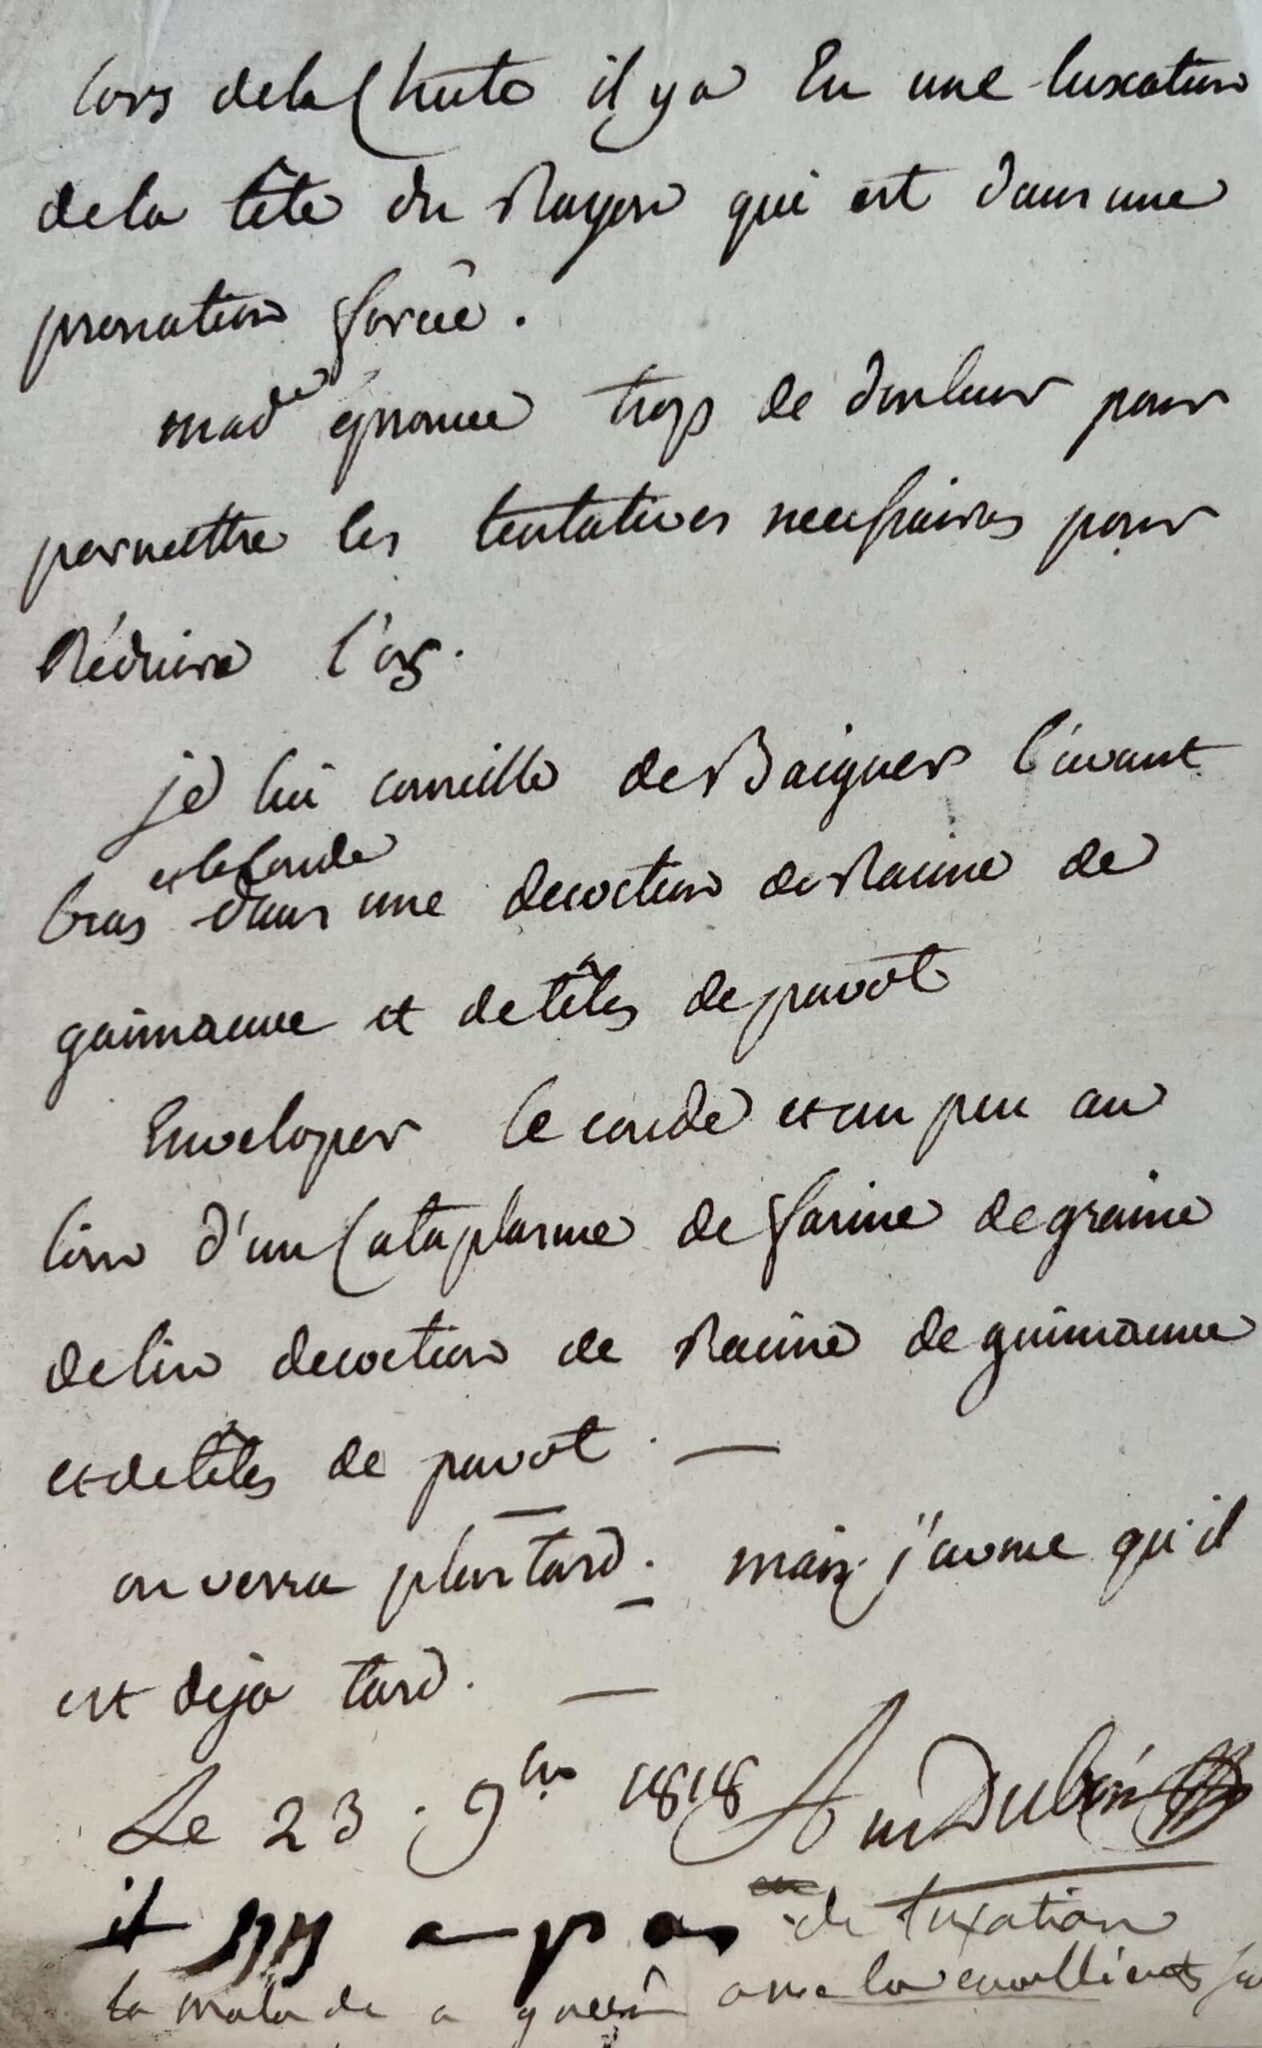 lors de la Chute il y a Eu une luxation
de la tête du Rayon qui est dans une
pronation forcée.
made éprouve trop de douleur pour
permettre les tentatives necessaires pour
Réduire l'os.
je lui conseille de Baigner l'avant
et le coude
bras dans une decoction de Racine de
guimauve et de têtes de pavot
Enveloper le coude et un peu au
loin d'un Cataplasme de farine de graine
de lin decoction de Racine de guimauve
et de têtes de pavot. —
on verra plus tard. mais j'avoue qu'il
est deja tard. —
Le 23. 9bre 1818 Am Dubin
il n'y a pas de luxation
la malade a guéri avec les emollients